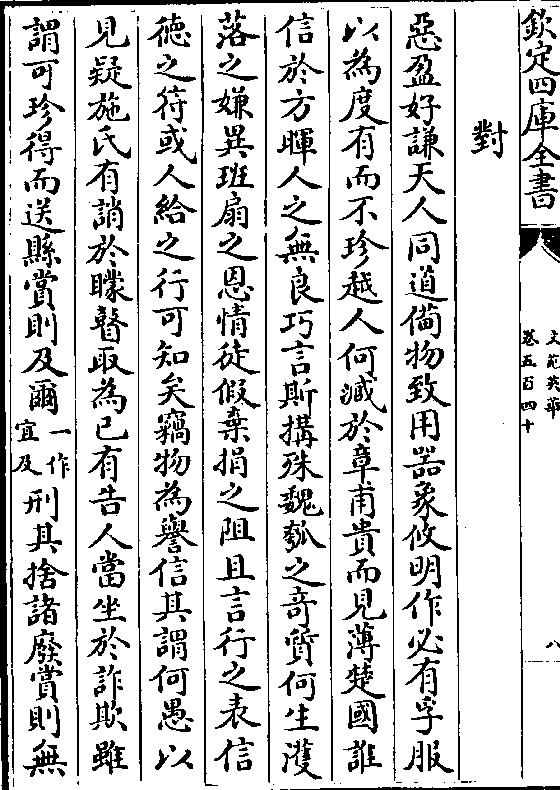 欽定四庫全書
文苑英華
卷五百四十
八
對
惡盈好謙天人同道僃物致用器象攸明作必有孚服
以為度有而不珍越人何減於章甫貴而見薄楚國誰
信於方暉人之無良巧言斯搆殊魏瓠之竒質何生濩
落之嫌異班扇之恩情徒假棄捐之阻且言行之表信
徳之符或人紿之行可知矣竊物為譽信其謂何愚以
見疑施氏有誚於矇瞽取為已有告人當坐於詐欺雖
謂可珍得而送縣賞則及爾一作宜及刑其捨諸廢賞則無